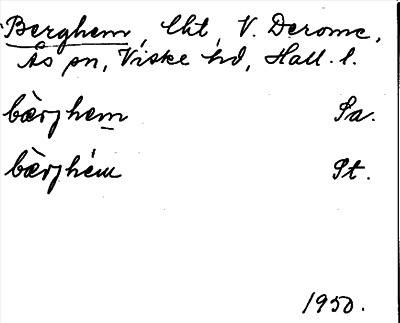 Berghem, lht, V. Derome,
Ås sn, Viske hd, Hall. l.
bærjhem Sa.
bærjhem St.
1950.